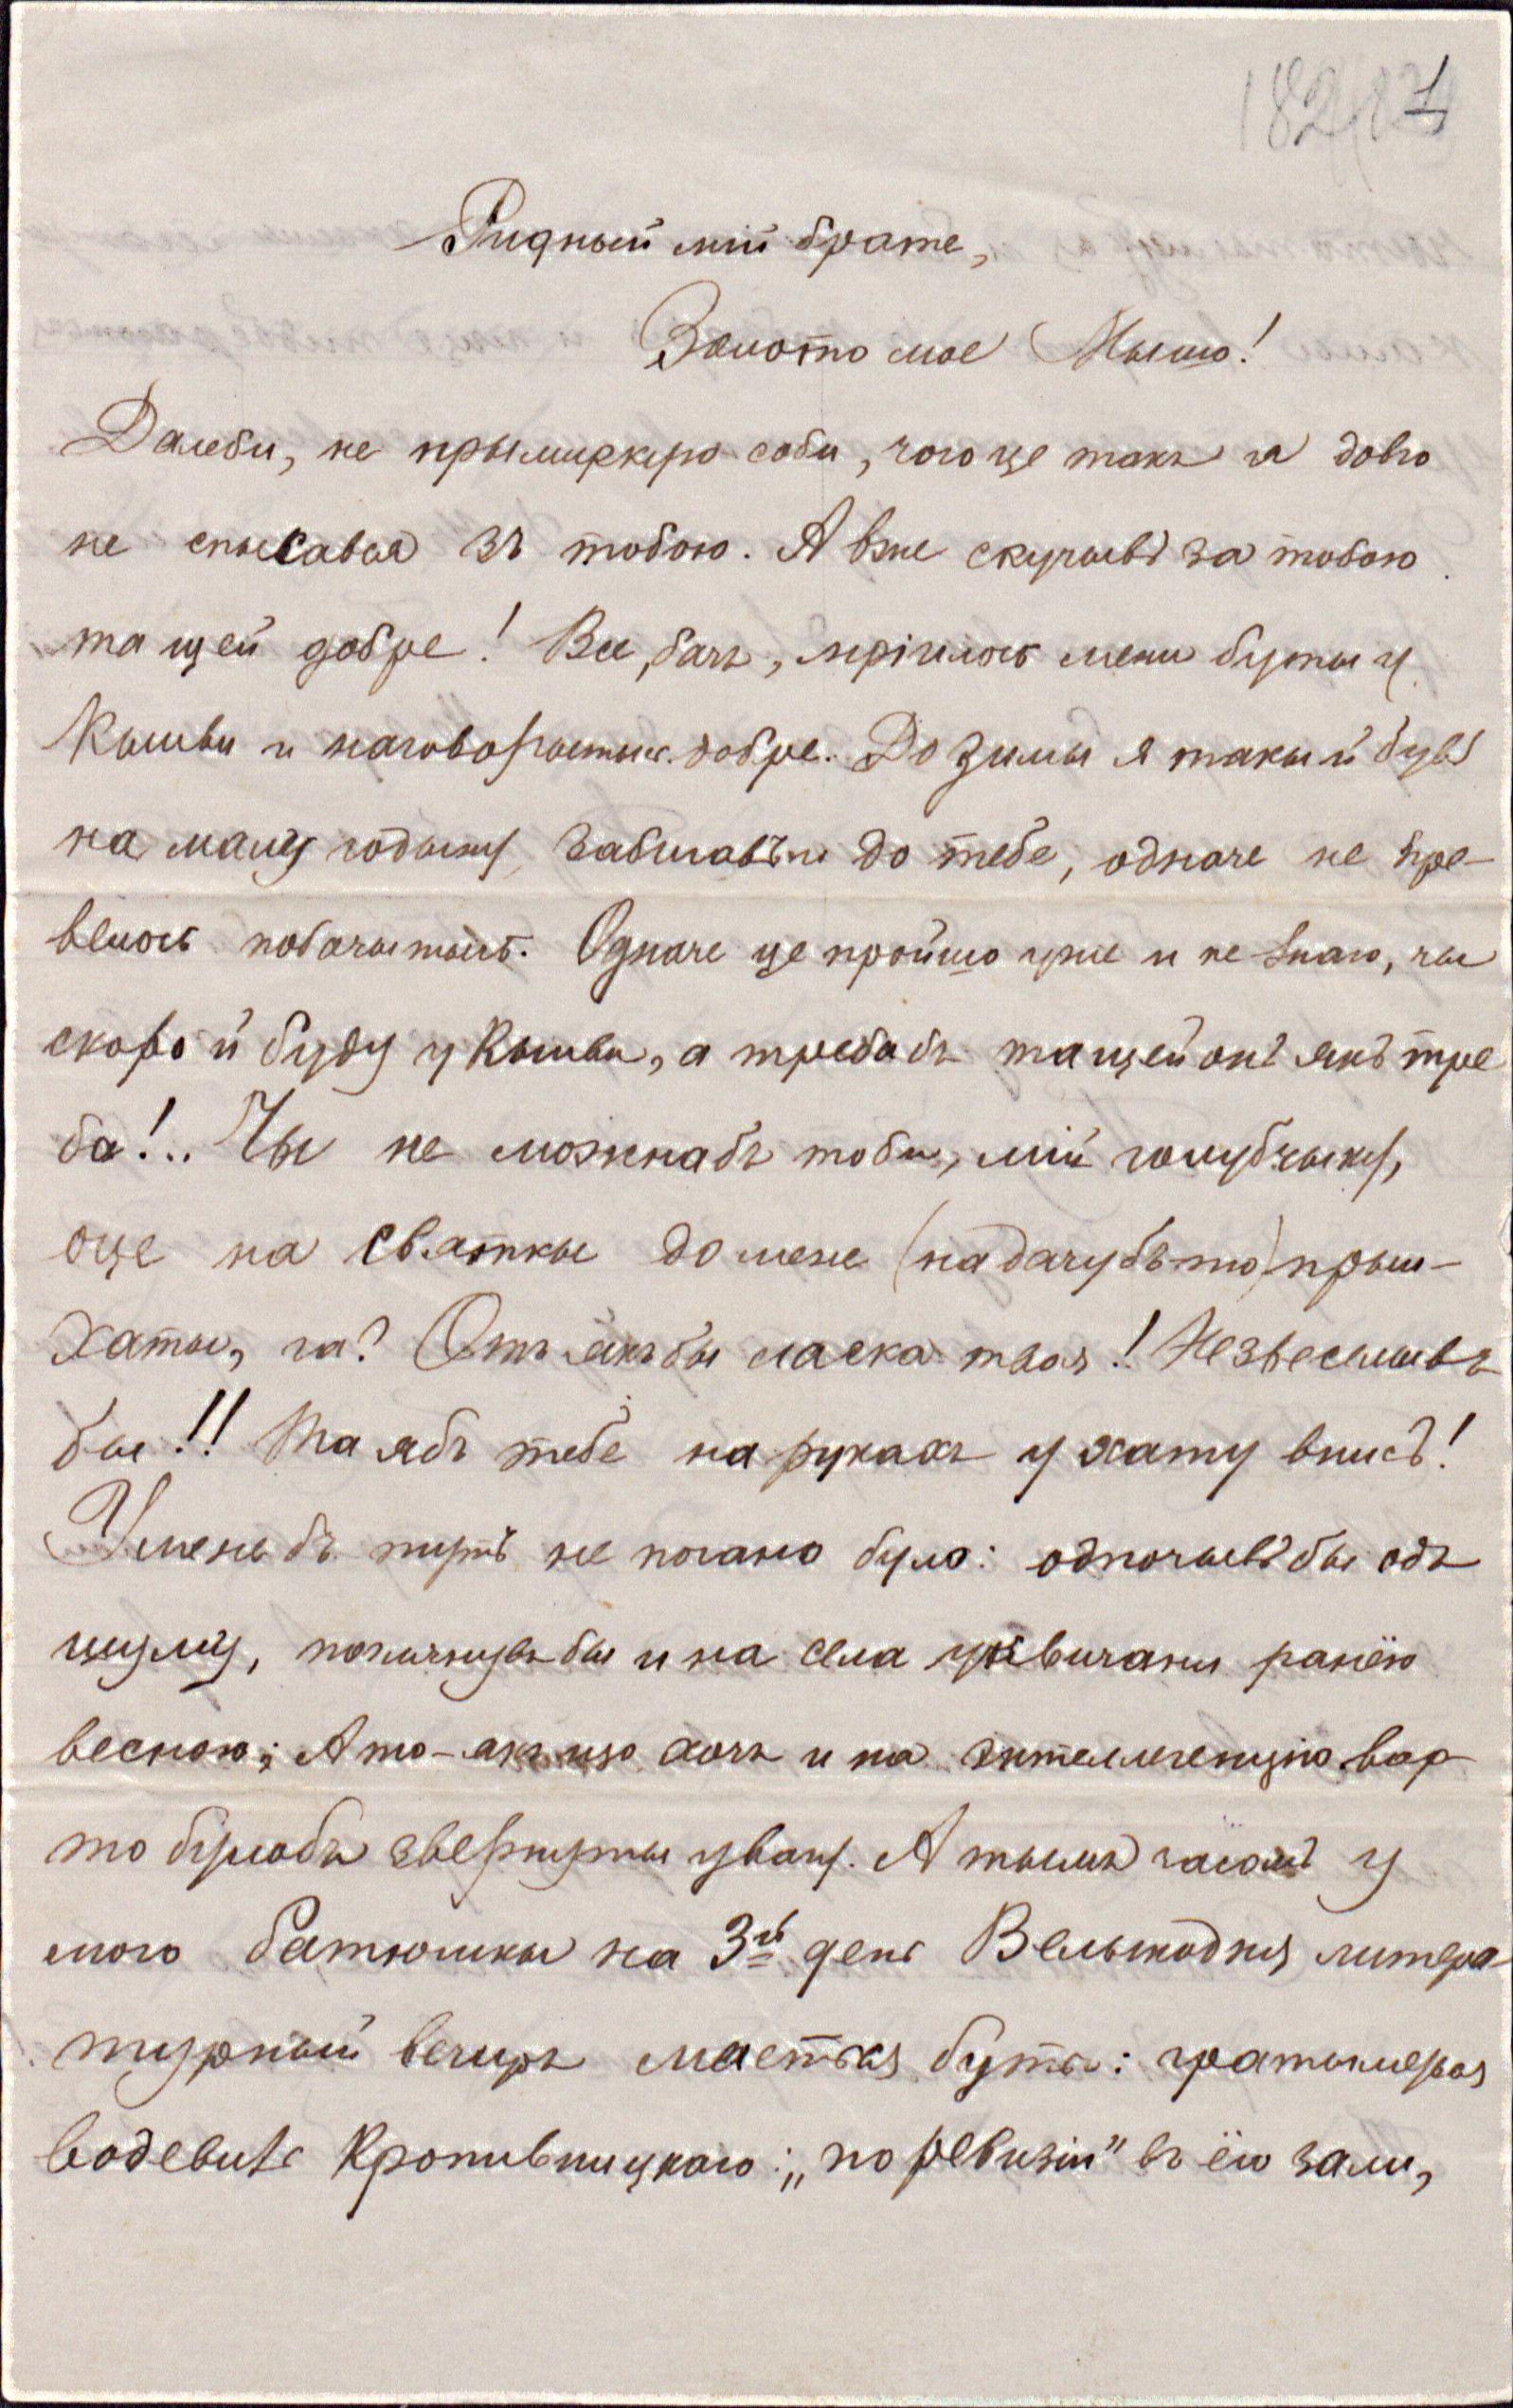 Ридный мій брате,
Золото мое Мышо!
Далеби, не прымиркую соби, чого це такъ я довго
не спысався зъ тобою. А вже скучывъ за тобою
та щей добре! Все, бачъ, мріялось мени буты у
Кыиви и наговорытысь добре. До зимы я такый бувъ
на малу годыну, забигавъ и до тебе, одначе не пре-
велось побачытысь. Одначе це пройшло уже и не знаю, чы
скоро й буду у Кыиви, а требабъ та щей онъ якъ тре
ба!.. Чы не можнабъ тоби, мій голубчыку,
оце на святкы до мене (на дачу бъ-то) прыи-
хаты, га? Отъ якъ бы ласка твоя! Незвеселывъ
бы!! Та ябъ тебе на рукахъ у хату внисъ!
У мене бъ тутъ не погано було: одпочывъ бы одъ
шуму, поглянувъ бы и на села у звичаяи ранёю
весною; А то-якъ що хочъ и на интеллегенцію вар
то булобъ звернуты увагу. А тымъ часомъ у
мого батюшкы на 3й день Велыкодня литера-
турный вечиръ маеться буты: гратымецьця
водевиль Кропивницкаго: „по ревизіи" въ ёго зали,